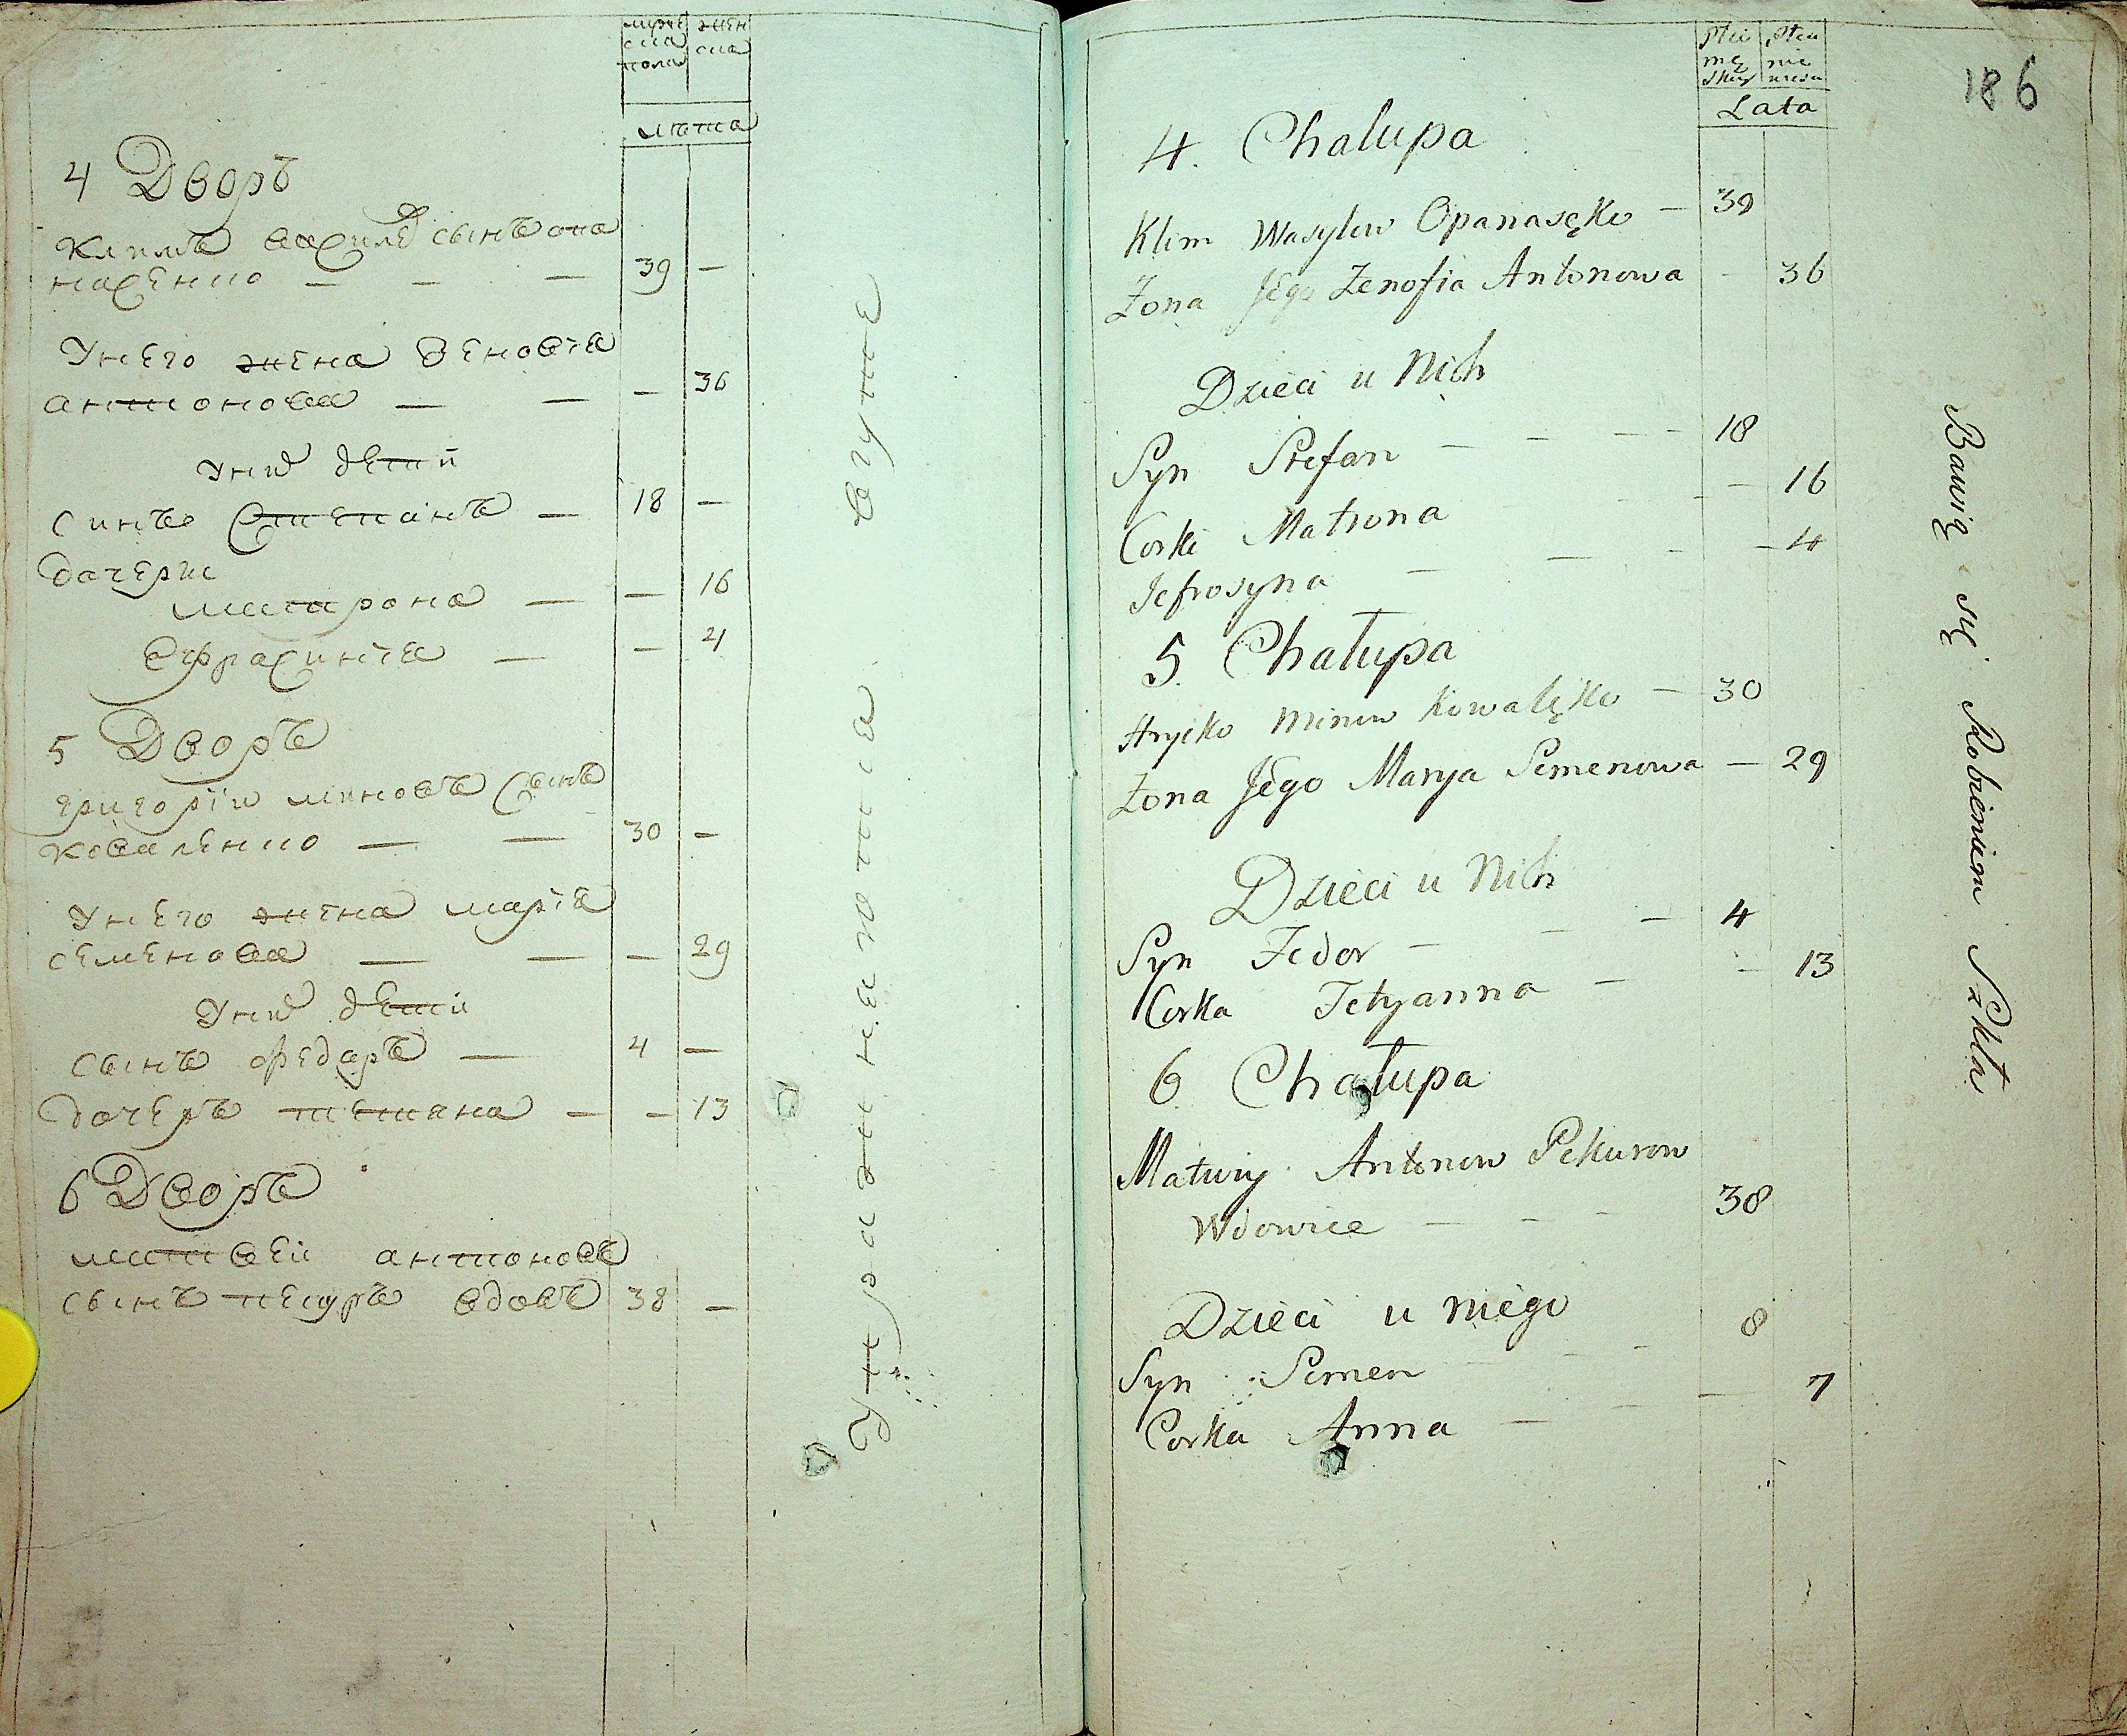 мужеска пола
женска
лѣта
4 Дворъ
Климъ василѣ сынъ опа
насенко — — — 39 —
У него жена Зеновія
антонова — — — 36
У них дети
синъ Степанъ — 18 —
дочери
матрона — — 16
Ефрасинія — — 4
5 Дворъ
григорій миновъ сынъ
коваленко — — 30 —
У него жена марія
семенова — — — 29
У них дети
сынъ федоръ — 4 —
дочеръ тетяна — — 13
6 Дворъ
матвей антоновъ
сынъ пекуръ вдовъ 38 —
186
Płci męskiey
Płci
Lata
4. Chalupa
Klim Wasylow Opanasęko — 39
Zona Jego Zenofia Antonowa — 36
Dzieci u Nich
Syn Stefan — — — — 18
Corki Matrona — 16
Jefrosyna — — — — 4
5. Chałupa
Hryćko Minow Kowalęko — 30
Zona Jego Marya Semenowa — 29
Dzieci u Nich
Syn Fedor — — — 4
Corka Tetyanna — — 13
6. Chałupa
Matwiy Antonow Pekurow
Wdowiec — — — 38
Dzieci u niego
Syn Semen — — — 8
Corka Anna — — — 7
Bawią się Robieniem Szkła